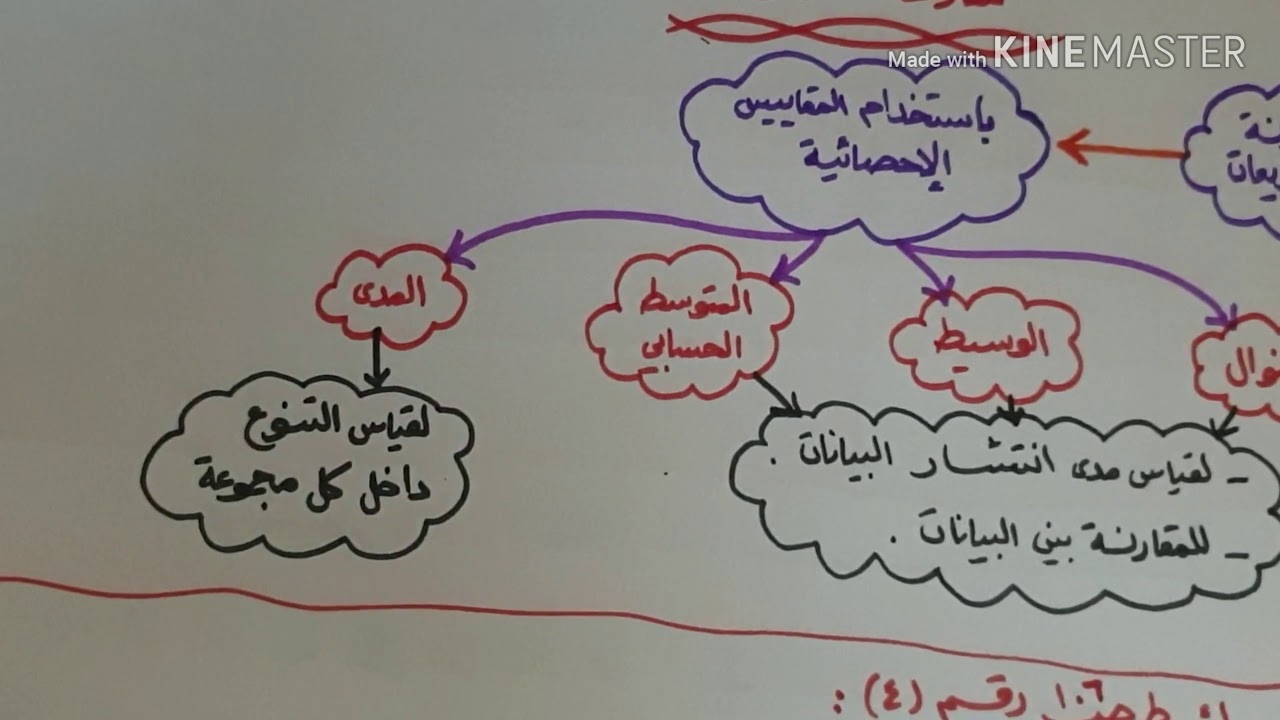 Made with KINEMASTER
باستخدام المقاييس
الإحصائية
المدى
المتوسط
الحسابي
الوسيط
لقياس التنوع
داخل كل مجموعة
- لقياس مدى انتشار البيانات .
- للمقارنة بين البيانات .
رقم (٤) :